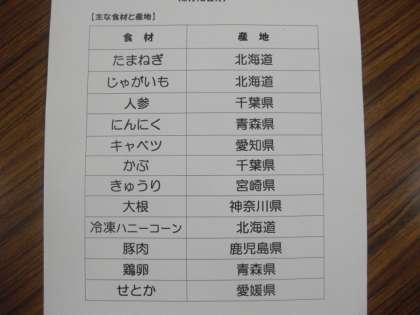 【主な食材と産地】
食材 産地
たまねぎ 北海道
じゃがいも 北海道
人参 千葉県
にんにく 青森県
キャベツ 愛知県
かぶ 千葉県
きゅうり 宮崎県
大根 神奈川県
冷凍ハニーコーン 北海道
豚肉 鹿児島県
鶏卵 青森県
せとか 愛媛県